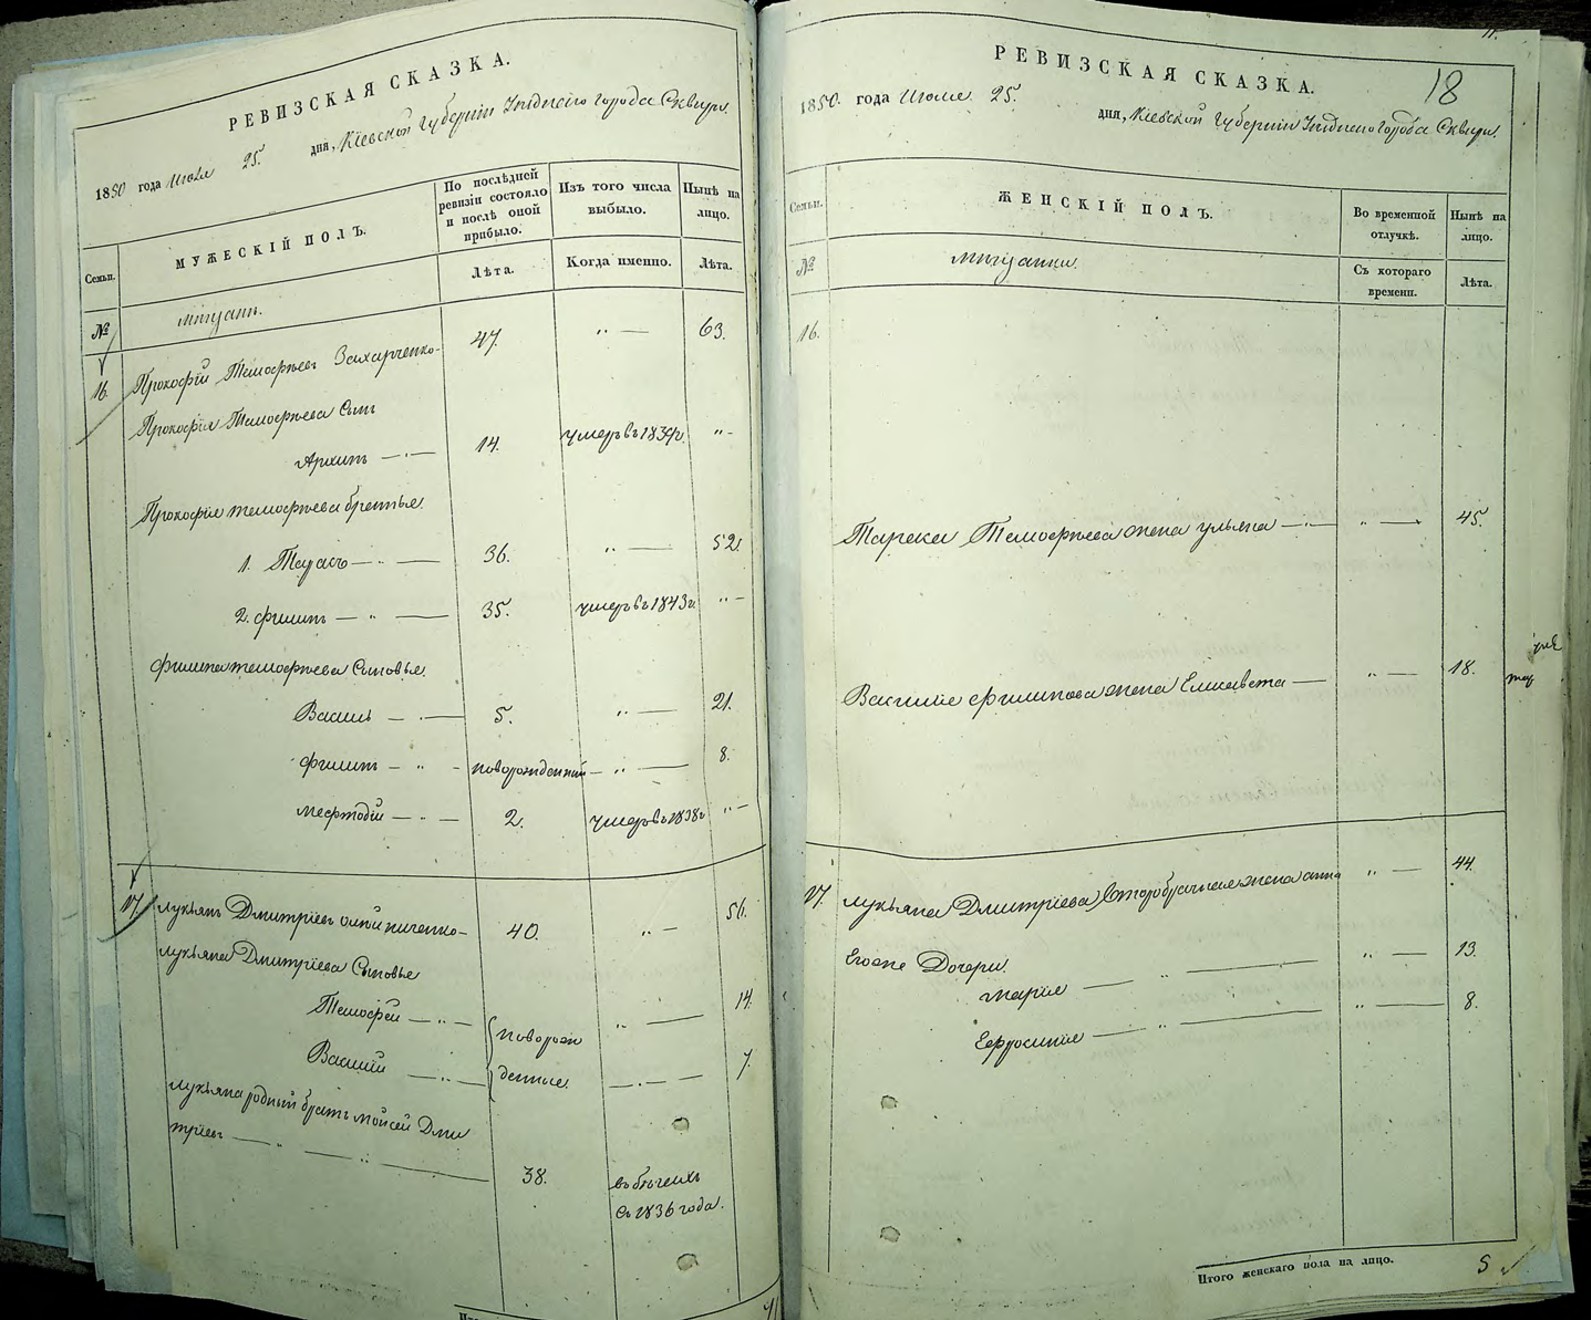 РЕВИЗСКАЯ СКАЗКА.
1850 года Июля 25. дня, Кіевской Губерніи Уѣзднаго города Сквиры.
Семьи.
МУЖЕСКІЙ ПОЛЪ.
По послѣдней ревизіи состояло и послѣ оной прибыло.
Изъ того числа выбыло.
Нынѣ на лицо.
Лѣта.
Когда именно.
Лѣта.
№
мещане.
16. Прокофій Темофѣевъ Захарченко 47. „ — 63.
Прокофія Темофѣева Сынъ
Архипъ — 14. умеръ въ 1834г. „ -
Прокофія темофѣева братья.
1. Тарасъ — 36. „ — 52.
2. филипъ — „ — 35. умеръ въ 1843г. „ -
филипа темофѣева Сыновья.
Василь — 5. „ — 21.
филипъ — „ - новорожденный — „ — 8.
мефтодій — „ — 2. умеръ въ 1838г „ -
17. лукьянъ Дмитріевъ 40. „ — 56.
лукьяна Дмитріева Сыновье
Темофей — „ — новорож „ — 14.
Василій — „ — денные. — 7.
лукьяна родный братъ Мойсей Дми
тріевъ — „ — 38. въ бѣгахъ
съ 1836 года.
РЕВИЗСКАЯ СКАЗКА.
18
1850. года Июля 25. дня, Кіевской Губерніи Уѣзднаго города Сквиры.
Семьи.
ЖЕНСКІЙ ПОЛЪ.
Во временной отлучкѣ.
Нынѣ на лицо.
№
мещанки.
Съ котораго времени.
Лѣта.
16.
Тараса Темофѣева жена ульяна — „ — 45.
Василия филипова жена Елисавета — „ — 18.
17. лукьяна Дмитріева второбрачная жена анна „ — 44.
Егоже Дочери.
марія — „ — „ — 13.
Ефросинія — „ — „ — 8.
Итого женскаго пола на лицо. 5